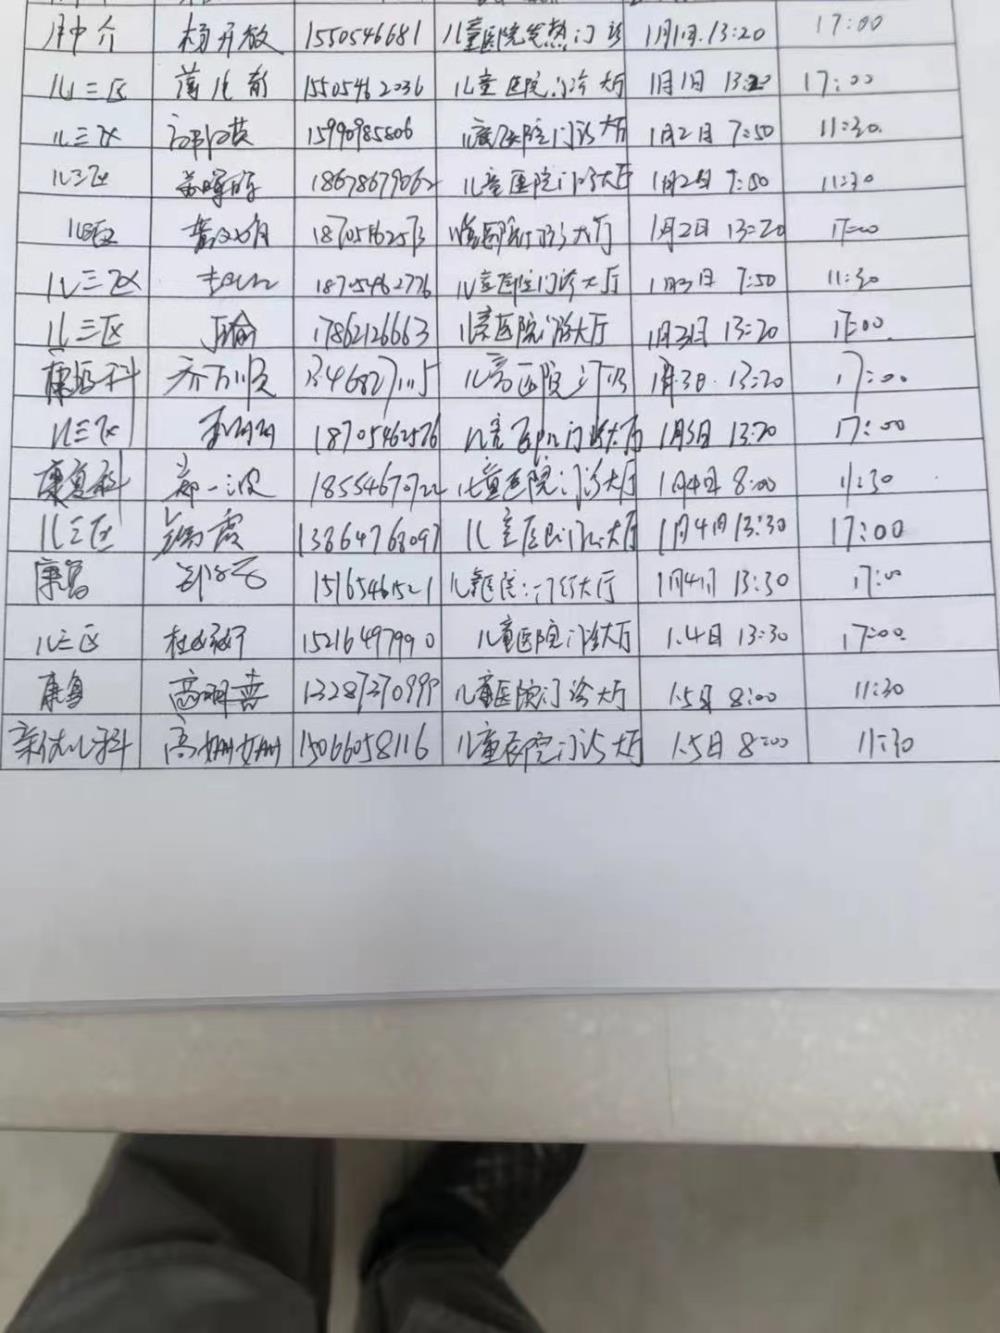 肿介 杨开放 1550546681 儿童医院发热门诊 1月1日 13:20 17:00
儿三区 15505462036 儿童医院门诊大厅 1月1日 13:20 17:00
儿三区 15990985806 儿童医院门诊大厅 1月2日 7:50 11:30
儿三区 18678679062 儿童医院门诊大厅 1月2日 7:50 11:30
18705462573 儿童医院门诊大厅 1月2日 13:20 17:00
儿三区 18705462776 儿童医院门诊大厅 1月3日 7:50 11:30
儿三区 17862126663 儿童医院门诊大厅 1月3日 13:20 17:00
儿童医院门诊 1月3日 13:20 17:00
儿三区 18705462576 儿童医院门诊大厅 1月3日 13:20 17:00
康复科 郑一波 18554670722 儿童医院门诊大厅 1月4日 8:00 11:30
儿三区 13864768097 儿童医院门诊大厅 1月4日 13:30 17:00
康复 15165461521 儿童医院门诊大厅 1月4日 13:30 17:00
儿三区 15216497990 儿童医院门诊大厅 1.4日 13:30 17:00
康复 高明喜 13287370999 儿童医院门诊大厅 1.5日 8:00 11:30
高姗姗 15066058116 儿童医院门诊大厅 1.5日 8:00 11:30